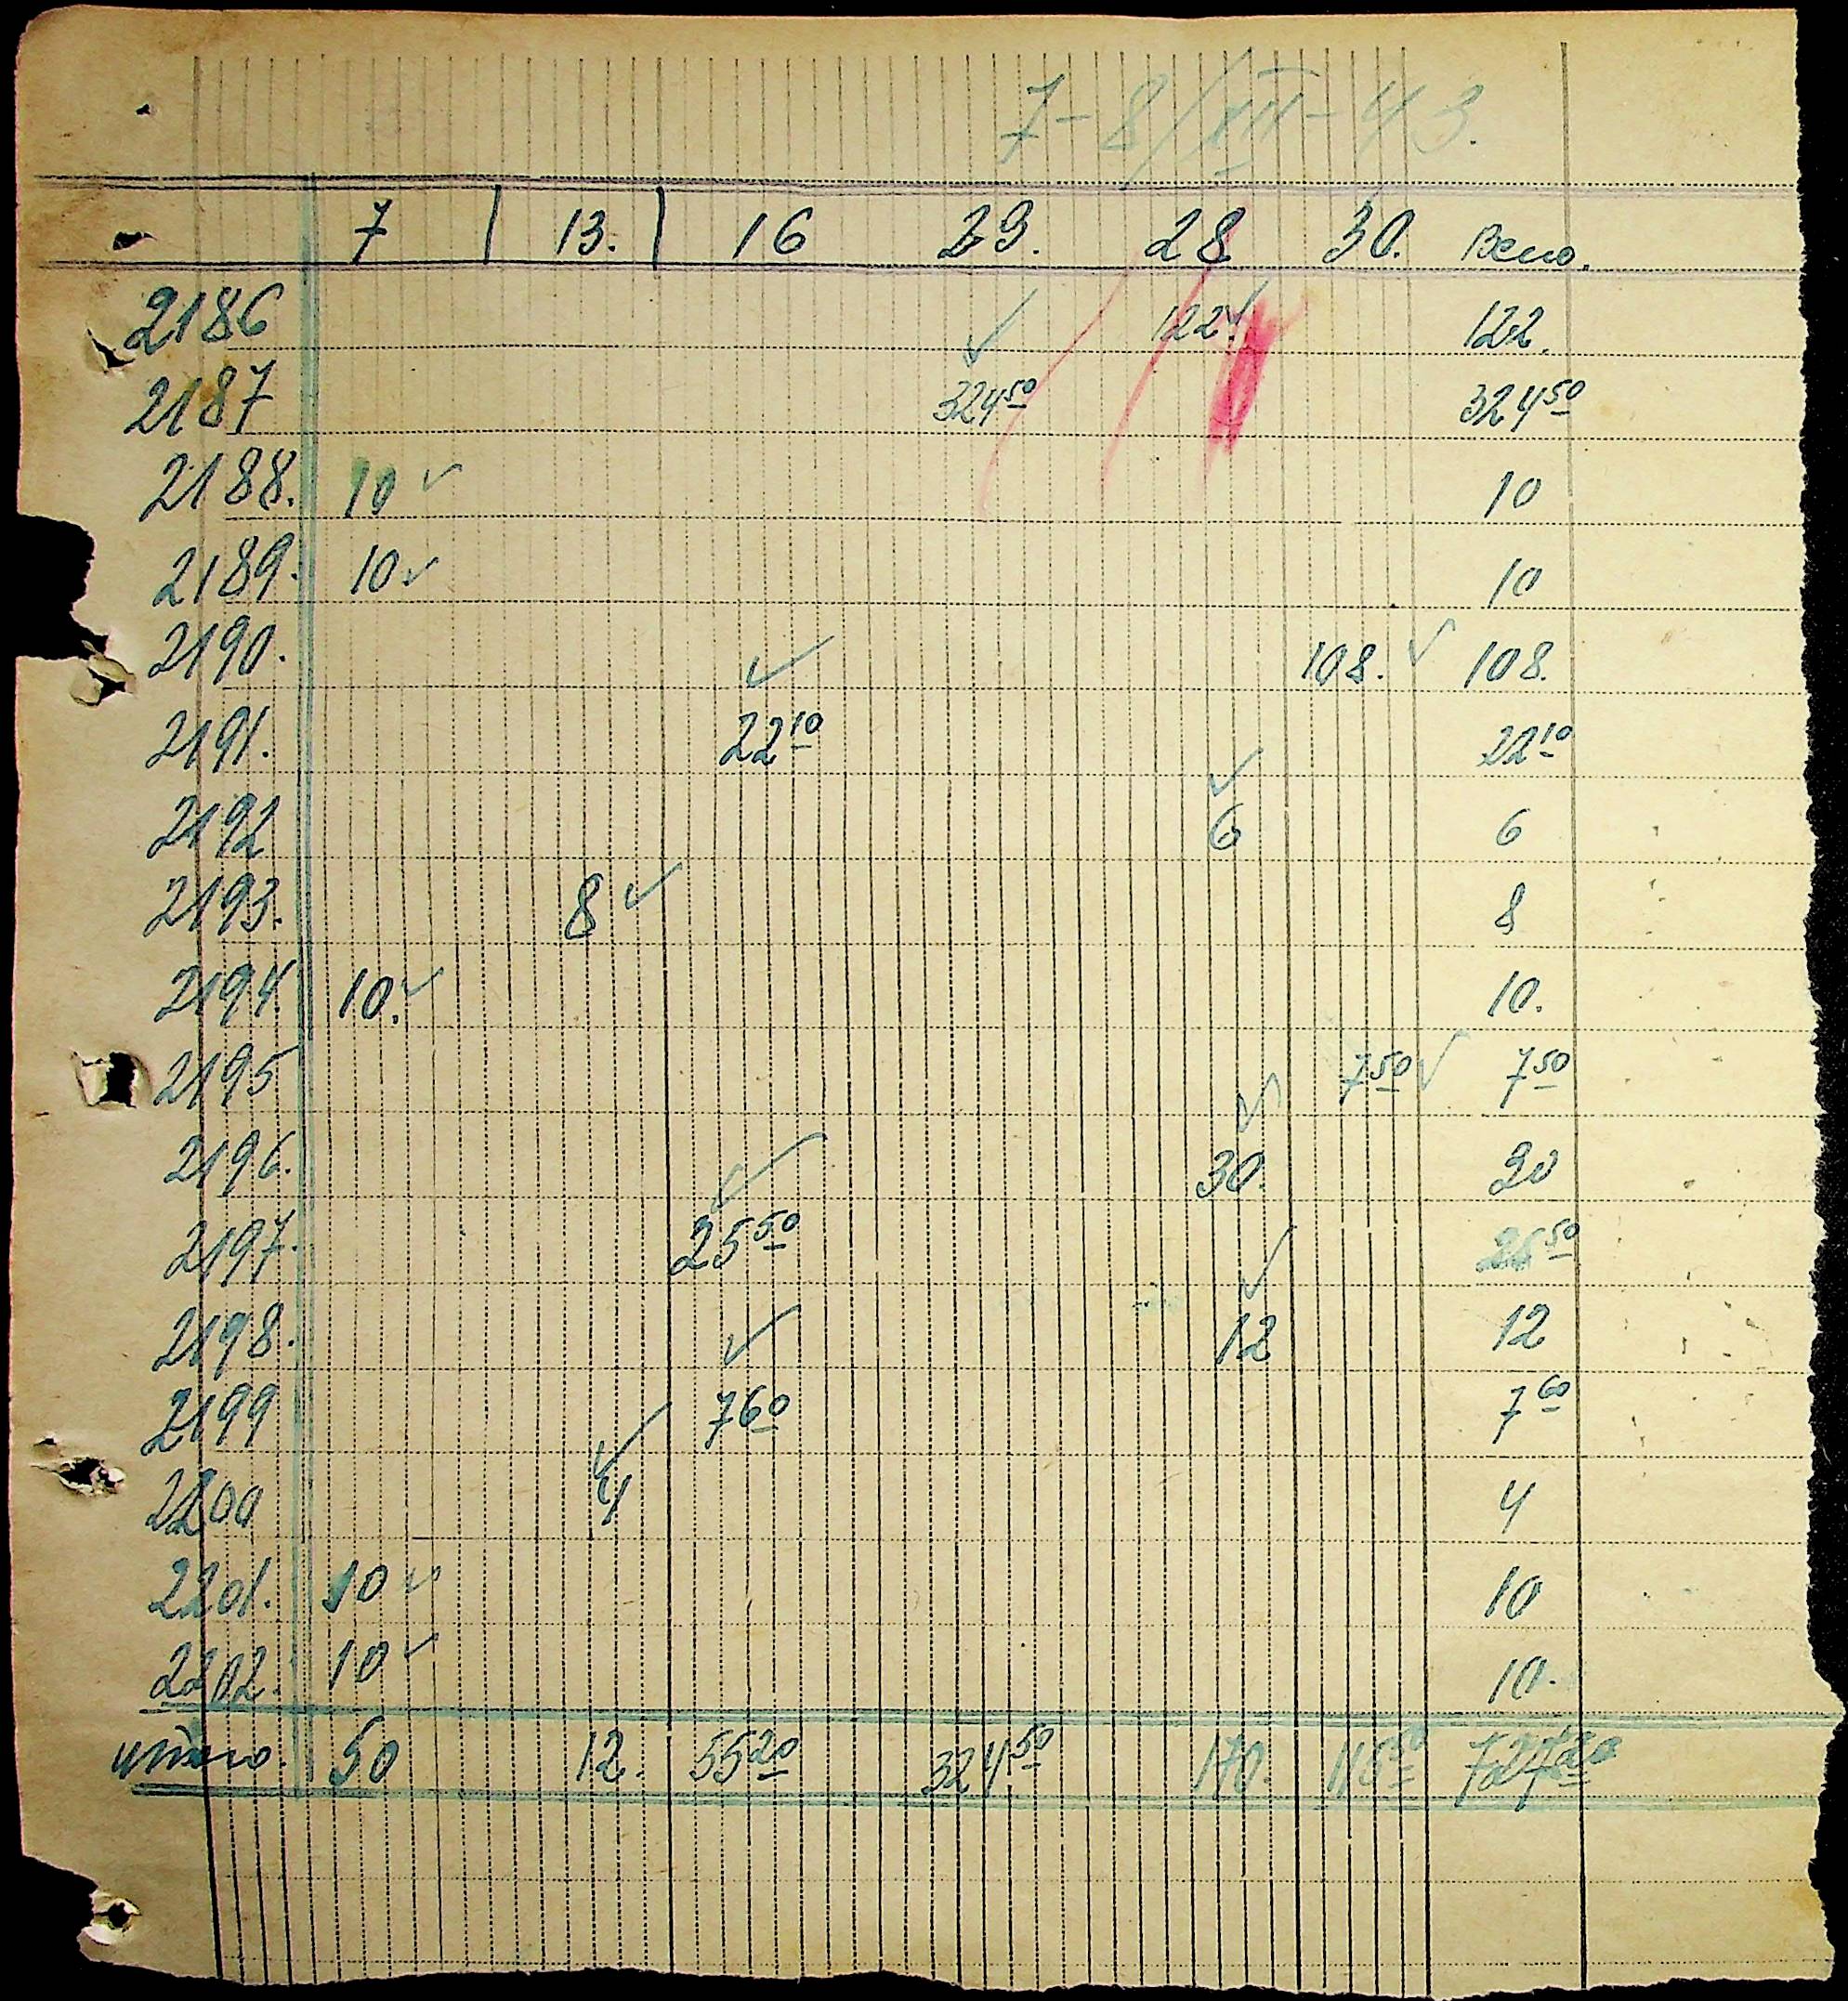 7-8/XII-43.
7 | 13. | 16 23. 28 30. Всего.
2186 ✓ 122 ✓ 122.
2187 324 50 324 50
2188. 10 ✓ 10
2189. 10 ✓ 10
2190. ✓ 108. ✓ 108.
2191. 22 10 ✓ 22 10
2192 6 6
2193. 8 ✓ 8
2194. 10. ✓ 10.
2195 7 50 ✓ 7 50
2196. ✓ ✓ 30. 30
2197. 25 50 ✓ 25 50
2198. ✓ 12 12
2199 ✓ 7 60 7 60
2200 4 4
2201. 10 ✓ 10
2202. 10 ✓ 10.
итого. 50 12. 55 20 324 50 170. 115 50 727 20